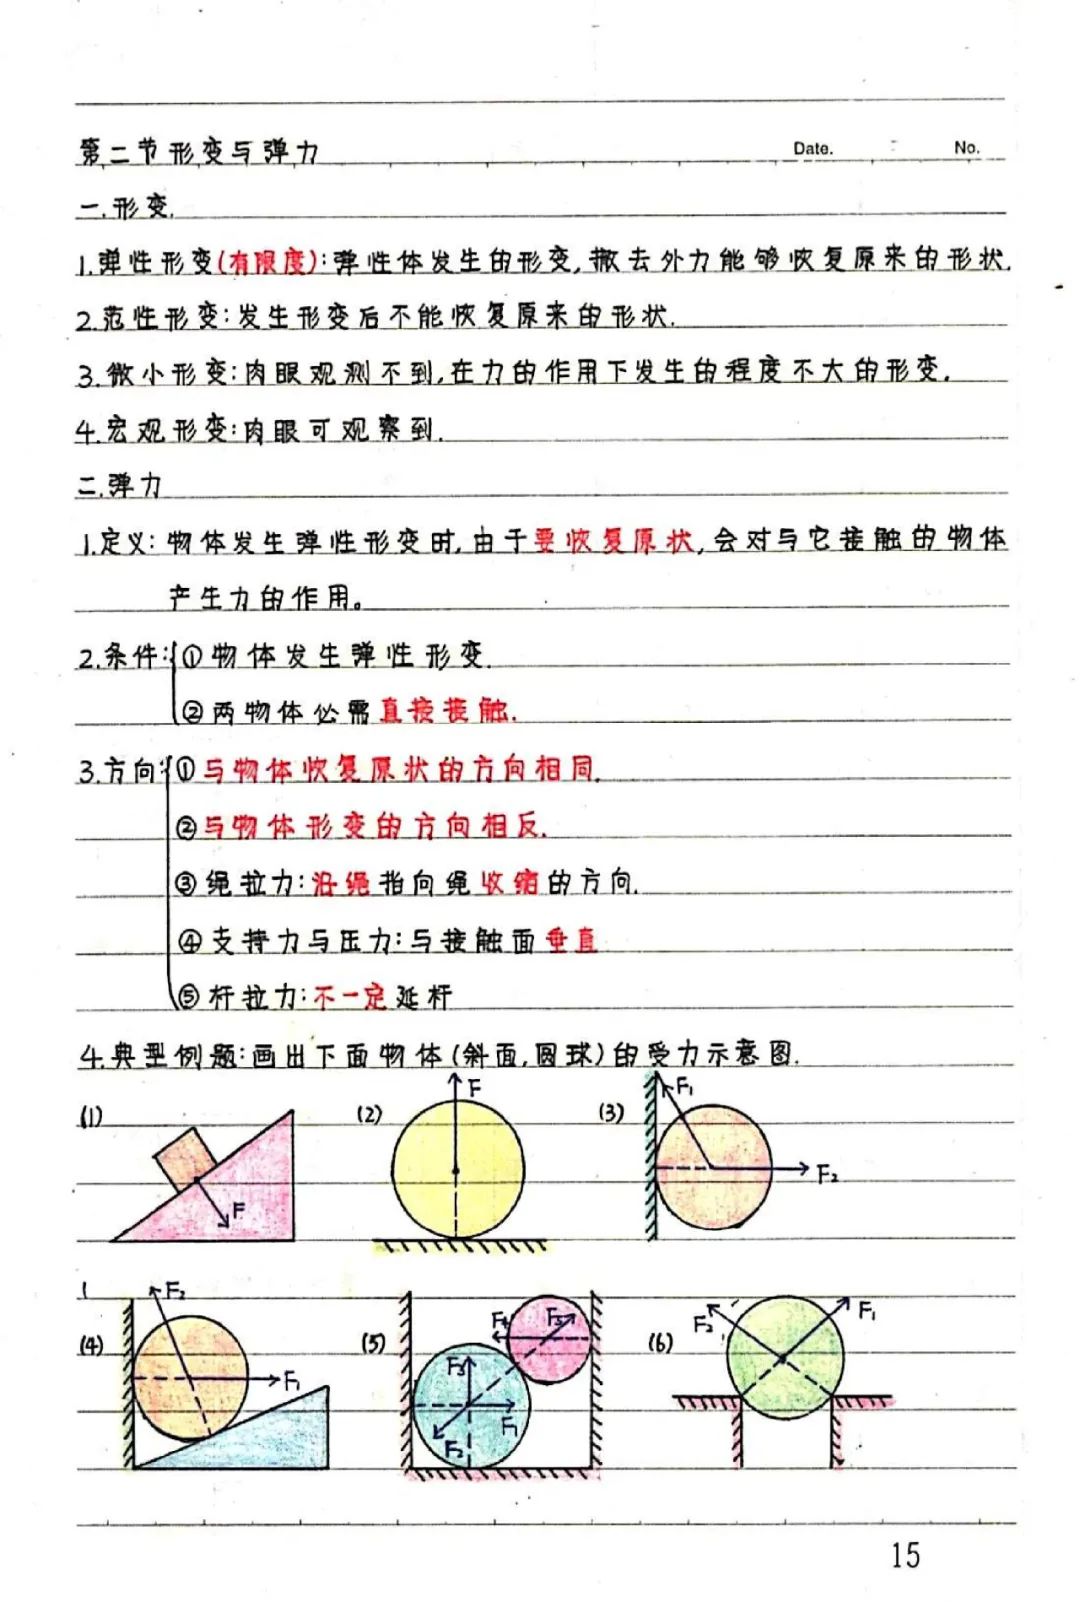 第二节形变与弹力 Date. No.
一.形变.
1.弹性形变(有限度):弹性体发生的形变,撤去外力能够恢复原来的形状.
2.范性形变:发生形变后不能恢复原来的形状.
3.微小形变:肉眼观测不到,在力的作用下发生的程度不大的形变.
4.宏观形变:肉眼可观察到.
二.弹力
1.定义:物体发生弹性形变时,由于要恢复原状,会对与它接触的物体
产生力的作用。
2.条件:①物体发生弹性形变.
②两物体必需直接接触.
3.方向:①与物体恢复原状的方向相同.
②与物体形变的方向相反.
③绳拉力:沿绳指向绳收缩的方向.
④支持力与压力:与接触面垂直
⑤杆拉力:不一定延杆
4.典型例题:画出下面物体(斜面,圆球)的受力示意图.
(1) F
(2) F
(3) F₁ F₂
(4) F₂ F₁
(5) F₄ F₅ F₃ F₁ F₂
(6) F₂ F₁
15